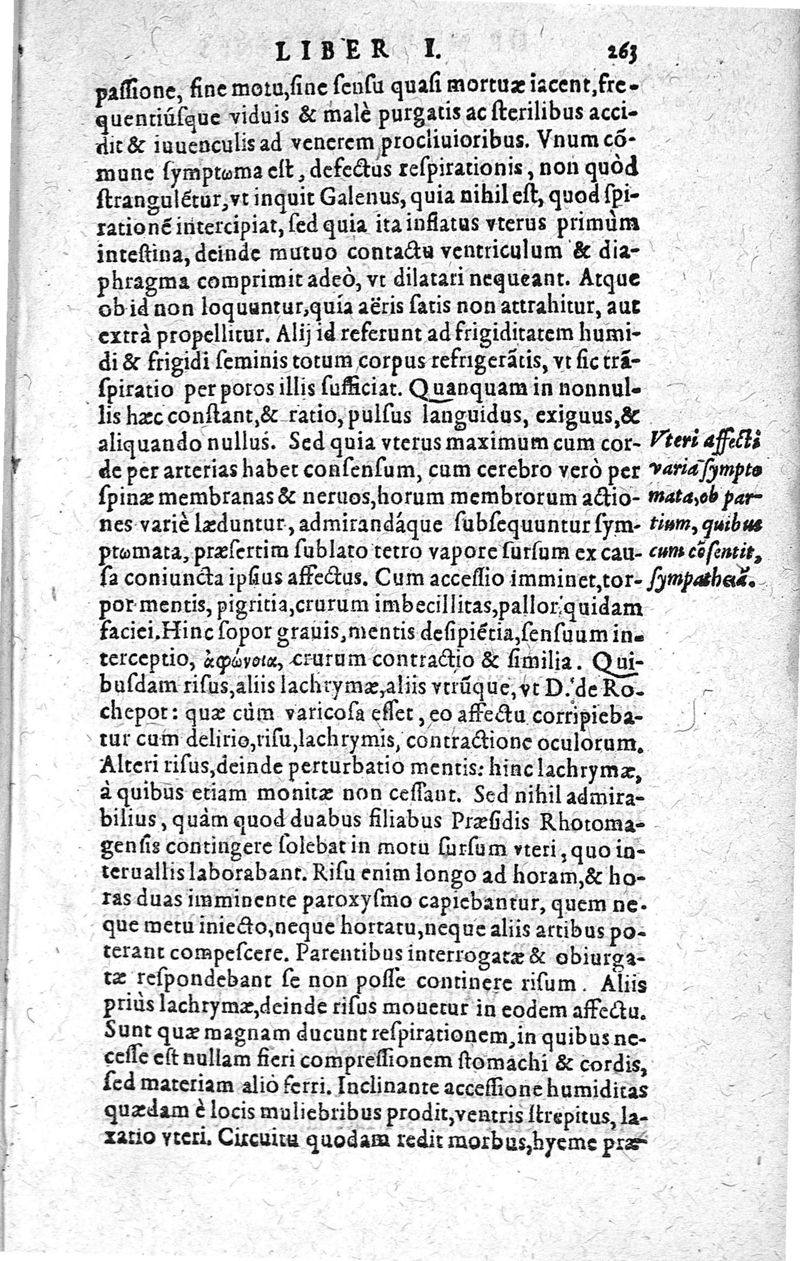 LIBER I. 263
paſſione, ſine motu, ſine ſenſu quaſi mortuæ iacent, fre-
quentiúſque viduis & malè purgatis ac ſterilibus acci-
dit & iuuenculis ad venerem procliuioribus. Vnum cō-
mune ſymptωma eſt, defectus reſpirationis, non quòd
ſtrangulētur, vt inquit Galenus, quia nihil eſt, quod ſpi-
rationē intercipiat, ſed quia ita inflatus vterus primùm
inteſtina, deinde mutuo contactu ventriculum & dia-
phragma comprimit adeò, vt dilatari nequeant. Atque
ob id non loquuntur, quia aëris ſatis non attrahitur, aut
extrà propellitur. Alij id referunt ad frigiditatem humi-
di & frigidi ſeminis totum corpus refrigerātis, vt ſic trā-
ſpiratio per poros illis ſufficiat. Quanquam in nonnul-
lis hæc conſtant, & ratio, pulſus languidus, exiguus, &
aliquando nullus. Sed quia vterus maximum cum cor-
de per arterias habet conſenſum, cum cerebro verò per
ſpinæ membranas & neruos, horum membrorum actio-
nes variè læduntur, admirandáque ſubſequuntur ſym-
ptωmata, præſertim ſublato tetro vapore ſurſum ex cau-
ſa coniuncta ipſius affectus. Cum acceſſio imminet, tor-
por mentis, pigritia, crurum imbecillitas, pallor quidam
faciei. Hinc ſopor grauis, mentis deſipiētia, ſenſuum in-
terceptio, ἀφώνεια, crurum contractio & ſimilia. Qui-
buſdam riſus, aliis lachrymæ, aliis vtrūque, vt D. de Ro-
chepot: quæ cùm varicoſa eſſet, eo affectu corripieba-
tur cum delirio, riſu, lachrymis, contractione oculorum.
Alteri riſus, deinde perturbatio mentis: hinc lachrymæ,
à quibus etiam monitæ non ceſſant. Sed nihil admira-
bilius, quàm quod duabus filiabus Præſidis Rhotoma-
genſis contingere ſolebat in motu ſurſum vteri, quo in-
teruallis laborabant. Riſu enim longo ad horam, & ho-
ras duas imminente paroxyſmo capiebantur, quem ne-
que metu iniecto, neque hortatu, neque aliis artibus po-
terant compeſcere. Parentibus interrogatæ & obiurga-
tæ reſpondebant ſe non poſſe continere riſum. Aliis
priùs lachrymæ, deinde riſus mouetur in eodem affectu.
Sunt quæ magnam ducunt reſpirationem, in quibus ne-
ceſſe eſt nullam fieri compreſſionem ſtomachi & cordis,
ſed materiam aliò ferri. Inclinante acceſſione humiditas
quædam è locis muliebribus prodit, ventris ſtrepitus, la-
xatio vteri. Circuitu quodam redit morbus, hyeme præ-
Vteri affecti
varia ſympto
mata, ob par-
tium, quibus
cum cōſentit,
ſympatheiā.